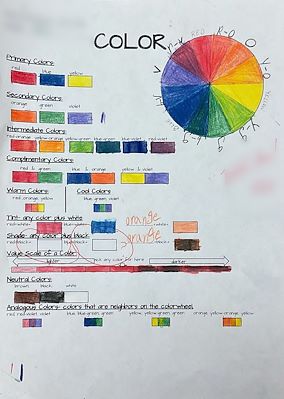 COLOR
RED
R-O
O
Y-O
YELLOW
Y-G
V
Primary Colors:
red blue yellow
Secondary Colors:
orange green violet
Intermediate Colors:
Complimentary Colors:
red & green blue & orange yellow & violet
Warm Colors: Cool Colors
red, orange, yellow blue, green, violet
Tint- any color plus white orange
red+white= blue+white= +white=
Shade- any color plus black orange
red+black= blue+black= +black=
Value Scale of a Color
lighter pick any color for here darker
Neutral Colors:
brown black white
Analogous Colors- colors that are neighbors on the colorwheel
red, red violet, violet blue, blue-green, green yellow, yellow green, green orange, yellow orange, yellow